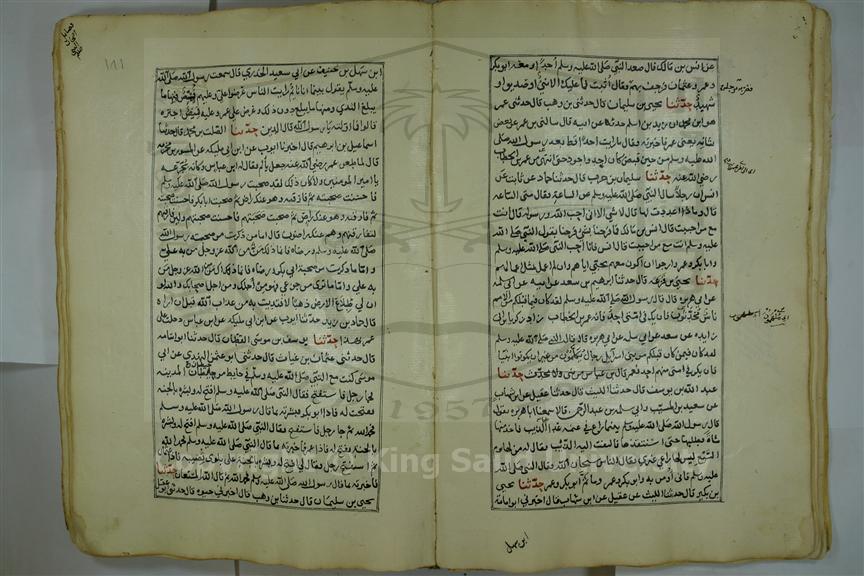 عن انس بن مالك قال صعد النبي صلى الله عليه وسلم أحدا ومعه ابو بكر
وعمر وعثمان فرجف بهم وقال اثبت فما عليك الا نبي او صديق او
شهيد حدثنا يحيى بن سليمان قال حدثني بن وهب قال حدثني عمر
هو ابن محمد ان زيد بن اسلم حدثه عن ابيه قال سالني بن عمر عن بعض
شانه يعني عمر فاخبرته فقال ما رايت احدا قط بعد رسول الله صلى
الله عليه وسلم من حين قبض كان اجد واجود حتى انتهى من عمر بن الخطاب
رضي الله عنه حدثنا سليمان بن حرب قال حدثنا حماد عن ثابت عن
انس ان رجلا سال النبي صلى الله عليه وسلم عن الساعة وقال متى الساعة
قال وماذا اعددت لها قال لا شي الا اني احب الله ورسوله قال انت
مع من احببت قال انس بن مالك فما فرحنا بشي فرحنا بقول النبي صلى الله
عليه وسلم انت مع من احببت قال انس فانا أحب النبي صلى الله عليه وسلم
وابا بكر وعمر وارجوا ان أكون معهم بحبي اياهم وان لم اعمل مثل اعمالهم
حدثنا يحيى بن قزعة قال حدثنا ابراهيم بن سعد عن ابيه عن ابي سلمة
عن ابي هريرة قال قال رسول الله صلى الله عليه وسلم لقد كان فيما قبلكم من الامم
ناس محدثون فان يك في امتي احد فانه عمر بن الخطاب زاد زكريا بن ابي
زايده عن سعد عن ابي سلمة عن ابي هريرة قال قال النبي صلى الله عليه وسلم
لقد كان فيمن كان قبلكم من بني اسرائيل رجال يكلمون من غير ان يكونوا انبيا
فان يكن في امتي منهم احد فعمر قال بن عباس من نبي ولا محدث حدثنا
عبد الله بن يوسف قال حدثنا الليث قال حدثنا عقيل عن بن شهاب
عن سعيد بن المسيب وابي سلمة بن عبد الرحمن قالا سمعنا ابا هريرة يقول
قال رسول الله صلى الله عليه وسلم بينما راع في غنمه عدا الذئب فاخذ منها
شاة فطلبها حتى استنقذها فالتفت اليه الذئب فقال له من لها يوم
السبع ليس لها راع غيري فقال الناس سبحان الله فقال النبي صلى الله
عليه وسلم فاني أومن به وابو بكر وعمر وما ثم ابو بكر وعمر حدثنا يحيى
بن بكير قال حدثنا الليث عن عقيل عن ابن شهاب قال اخبرني ابو امامة
ابن سهل
١٨١
ابن سهل بن حنيف عن ابي سعيد الخدري قال سمعت رسول الله صلى الله
عليه وسلم يقول بينما انا نايم رايت الناس عرضوا علي وعليهم قمص فمنها ما
يبلغ الثدي ومنها ما يبلغ دون ذلك وعرض علي عمر وعليه قميص اجتره
قالوا فما اولته يا رسول الله قال الدين حدثنا الصلت بن محمد قال حدثنا
اسماعيل بن ابراهيم قال اخبرنا ايوب عن ابن ابي مليكه عن المسور بن مخرمة
قال لما طعن عمر رضي الله عنه جعل يألم فقال له ابن عباس وكانه يجزعه
يا امير المومنين ولا كان ذلك لقد صحبت رسول الله صلى الله عليه وسلم
فاحسنت صحبته ثم فارقته وهو عنك راض ثم صحبت ابا بكر فاحسنت صحبته
ثم فارقته وهو عنك راض ثم صحبت صحبتهم فاحسنت صحبتهم ولئن فارقتهم
لتفارقنهم وهم عنك راضون قال اما ما ذكرت من صحبة رسول الله
صلى الله عليه وسلم ورضاه فانما ذلك من من الله عز وجل من به علي
واما ما ذكرت من صحبة ابي بكر ورضاه فانما ذلك من من الله عز وجل من
به علي واما ما ترى من جزعي فهو من أجلك ومن اجل اصحابك والله لو
ان لي طلاع الارض ذهبا لافتديت به من عذاب الله قبل ان اراه
قال حماد بن زيد حدثنا ايوب عن ابن ابي مليكه عن ابن عباس دخلت على
عمر بهذا حدثنا يوسف بن موسى القطان قال حدثنا ابو اسامه
قال حدثني عثمان بن غياث قال حدثني ابو عثمن النهدي عن ابي
موسى كنت مع النبي صلى الله عليه وسلم في حايط من حيطان المدينه
فجا رجل فاستفتح فقال النبي صلى الله عليه وسلم افتح له وبشره بالجنه
ففتحت له فاذا ابو بكر فبشرته بما قال رسول الله صلى الله عليه وسلم
فحمد الله ثم جا رجل فاستفتح فقال النبي صلى الله عليه وسلم افتح له وبشره
بالجنه ففتحت له فاذا عمر فاخبرته بما قال النبي صلى الله عليه وسلم فحمد الله
ثم استفتح رجل فقال لي افتح له وبشره بالجنة على بلوى تصيبه فاذا عثمان
فاخبرته بما قال رسول الله صلى الله عليه وسلم فحمد الله ثم قال الله المستعان حدثنا
يحيى بن سليمان قال حدثنا بن وهب قال اخبرني حيوه قال حدثني ابو عقيل
King Sa
1957